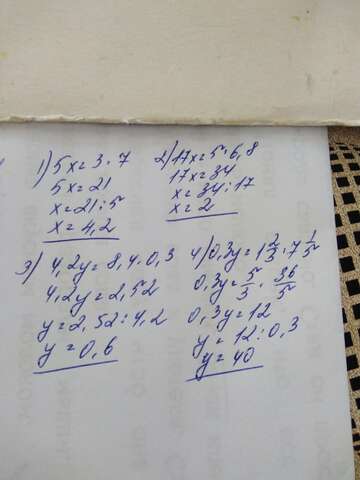 1) 5x = 3 · 7
5x = 21
x = 21 : 5
x = 4,2
2) 17x = 5 · 6,8
17x = 34
x = 34 : 17
x = 2
3) 4,2y = 8,4 · 0,3
4,2y = 2,52
y = 2,52 : 4,2
y = 0,6
4) 0,3y = 1 2/3 · 7 1/5
0,3y = 5/3 · 36/5
0,3y = 12
y = 12 : 0,3
y = 40